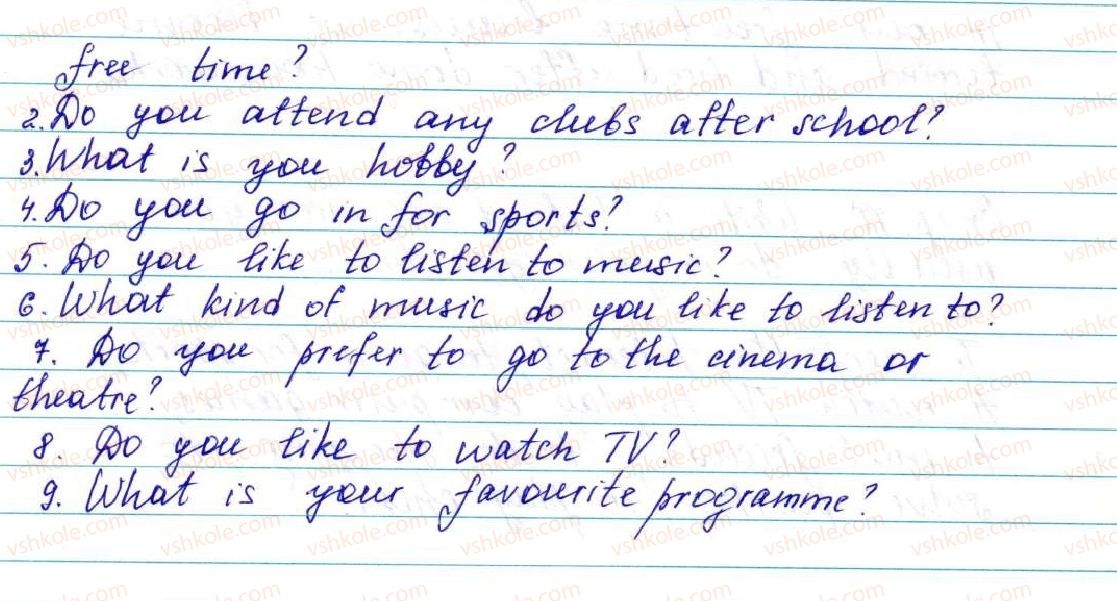 free time?
2. Do you attend any clubs after school?
3. What is you hobby?
4. Do you go in for sports?
5. Do you like to listen to music?
6. What kind of music do you like to listen to?
7. Do you prefer to go to the cinema or
theatre?
8. Do you like to watch TV?
9. What is your favourite programme?